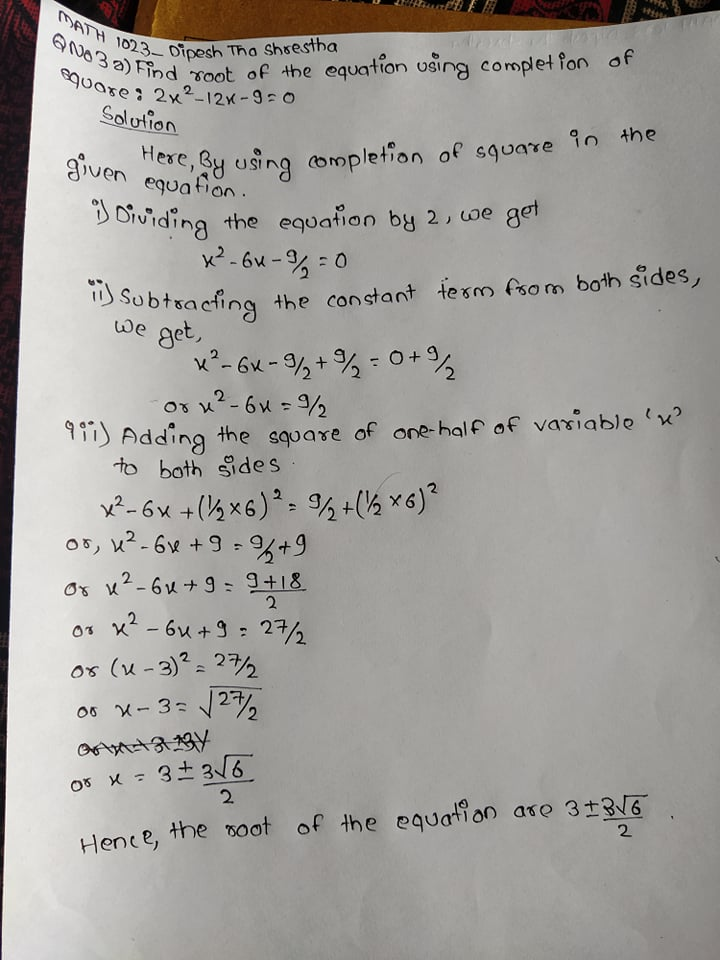 MATH 1023_ Dipesh Tha Shrestha
QNo3 a) Find root of the equation using completion of
square: 2x²-12x-9=0
Solution
Here, By using completion of square in the
given equation.
i) Dividing the equation by 2, we get
x²-6x-9/2=0
ii) Subtracting the constant term from both sides,
we get,
x²-6x-9/2+9/2=0+9/2
or x²-6x=9/2
iii) Adding the square of one-half of variable 'x'
to both sides.
x²-6x+(1/2×6)²=9/2+(1/2×6)²
or, x²-6x+9=9/2+9
or x²-6x+9=(9+18)/2
or x²-6x+9=27/2
or (x-3)²=27/2
or x-3=√27/2
or x=3±3√6/2
Hence, the root of the equation are 3±3√6/2.